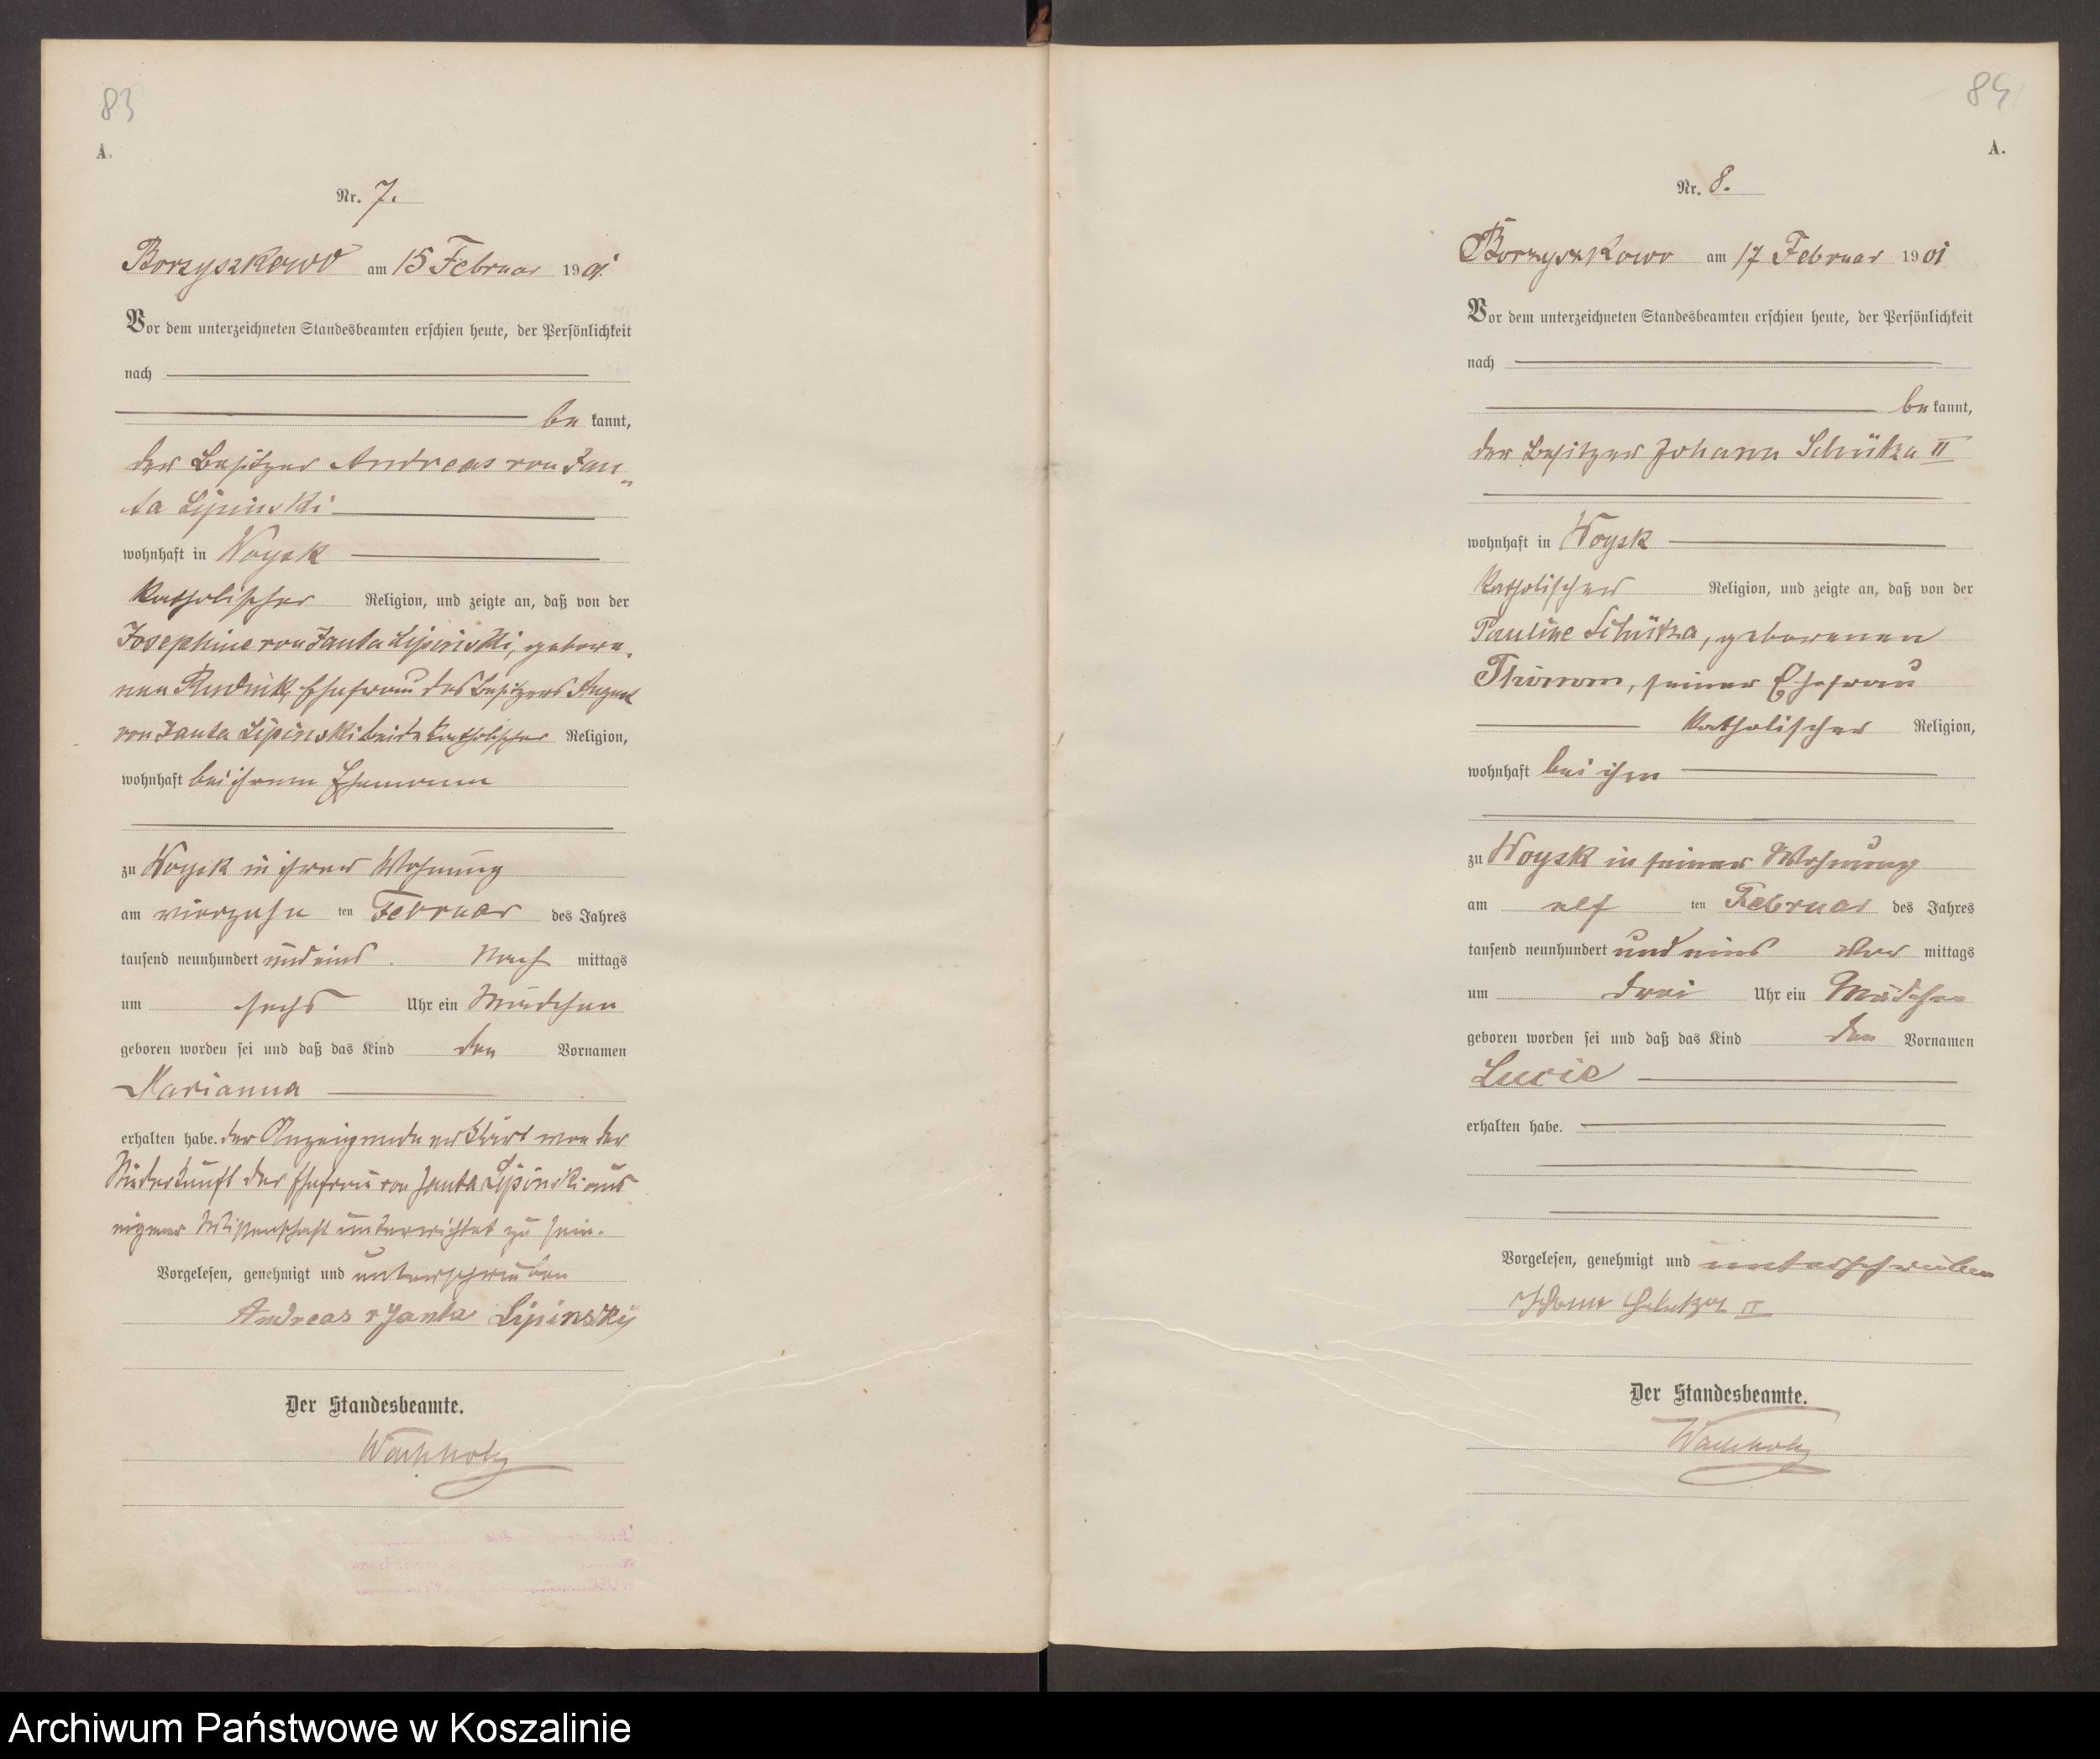 83
A.
Nr. 7.
Borzyszkowo am 15 Februar 1901.
Vor dem unterzeichneten Standesbeamten erschien heute, der Persönlichkeit
nach
be kannt,
der Besitzer Andreas von Jan„
ta Lipinski
wohnhaft in Woysk
katholischer Religion, und zeigte an, daß von der
Josephine von Janta Lipinski, gebore„
nen Rudnik, Ehefrau des Besitzers August
von Janta Lipinski beide katholischer Religion,
wohnhaft bei ihrem Ehemann
zu Woysk in ihrer Wohnung
am vierzehn ten Februar des Jahres
tausend neunhundert und eins. Nach mittags
um sechs Uhr ein Mädchen
geboren worden sei und daß das Kind den Vornamen
Marianna
erhalten habe. der Anzeigende erklärt von der
Niederkunft der Ehefrau von Janta Lipinski aus
eigener Wissenschaft unterrichtet zu sein.
Vorgelesen, genehmigt und unterschrieben
Andreas v Janta Lipinski
Der Standesbeamte.
Wachholz
A.
Nr. 8.
Borzyszkowo am 17 Februar 1901
Vor dem unterzeichneten Standesbeamten erschien heute, der Persönlichkeit
nach
be kannt,
der Besitzer Johann Schütza II
wohnhaft in Woysk
katholischer Religion, und zeigte an, daß von der
Pauline Schütza, geborenen
seiner Ehefrau
katholischer Religion,
wohnhaft bei ihm
zu Woysk in seiner Wohnung
am elf ten Februar des Jahres
tausend neunhundert und eins Vor mittags
um drei Uhr ein Mädchen
geboren worden sei und daß das Kind den Vornamen
Lucie
erhalten habe.
Vorgelesen, genehmigt und unterschrieben
II
Der Standesbeamte.
Wachholz
Archiwum Państwowe w Koszalinie